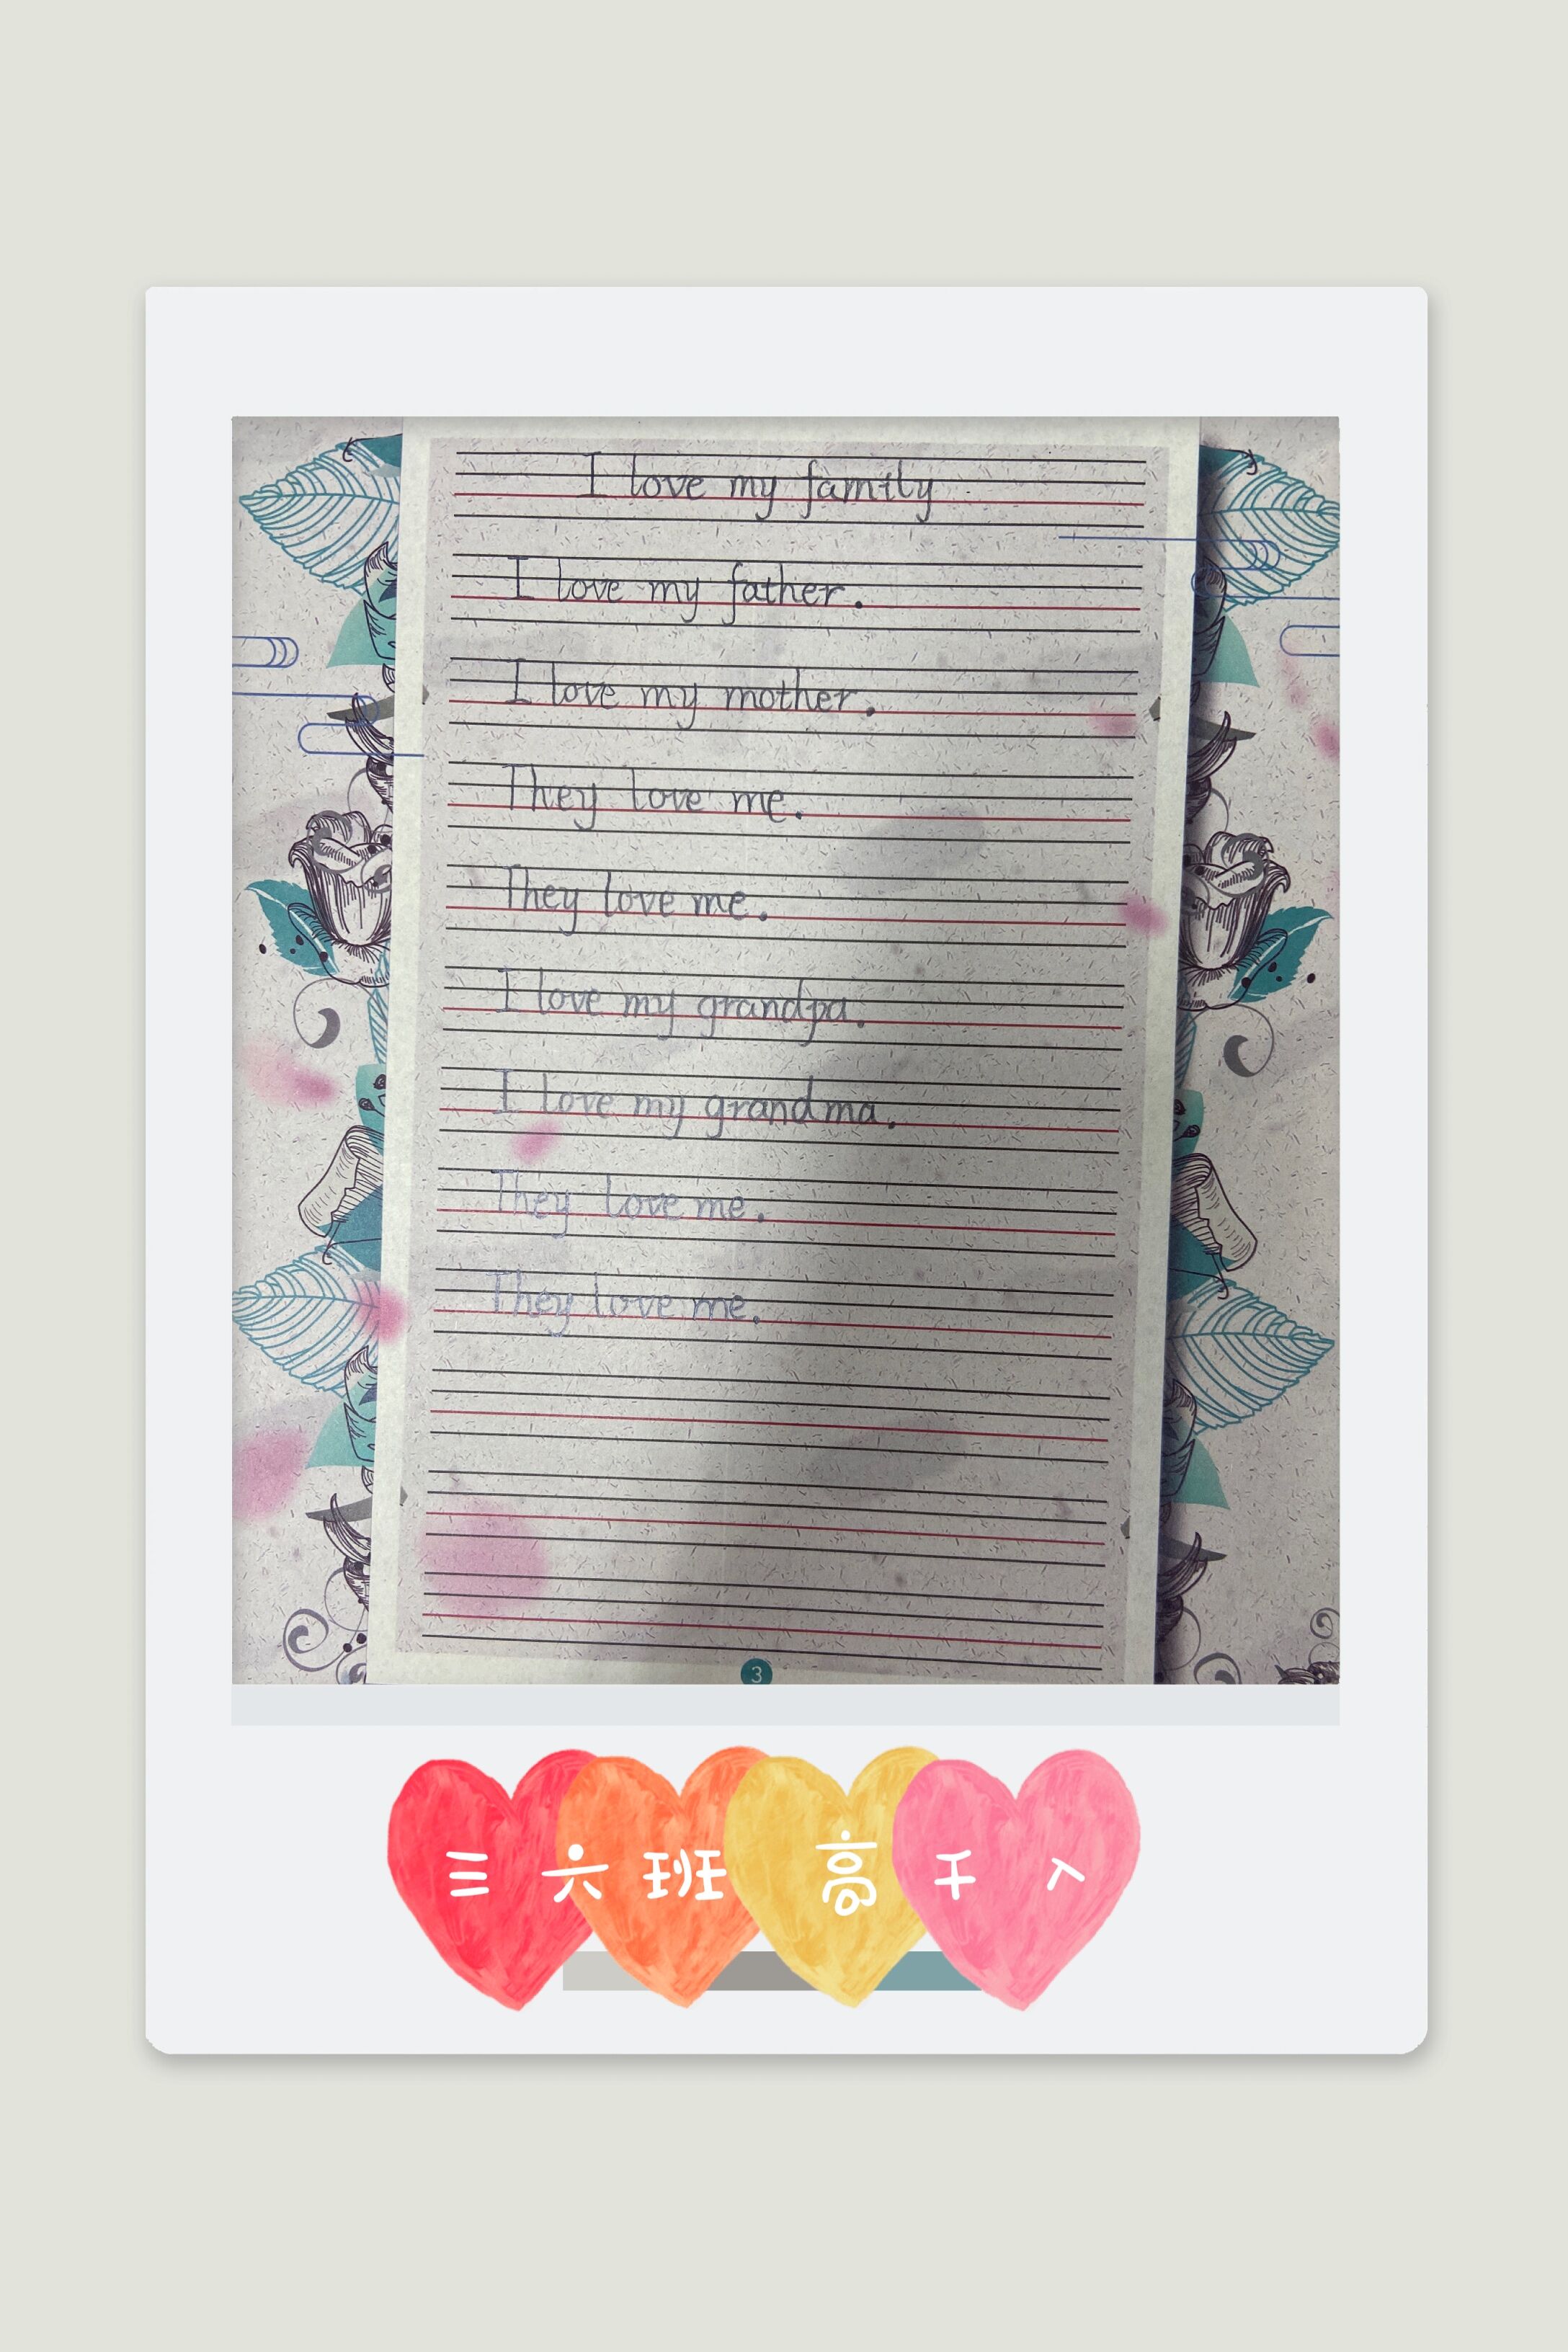 I love my family
I love my father.
I love my mother.
They love me.
They love me.
I love my grandpa.
I love my grandma.
They love me.
They love me.
3
三 六 班 高 千 入